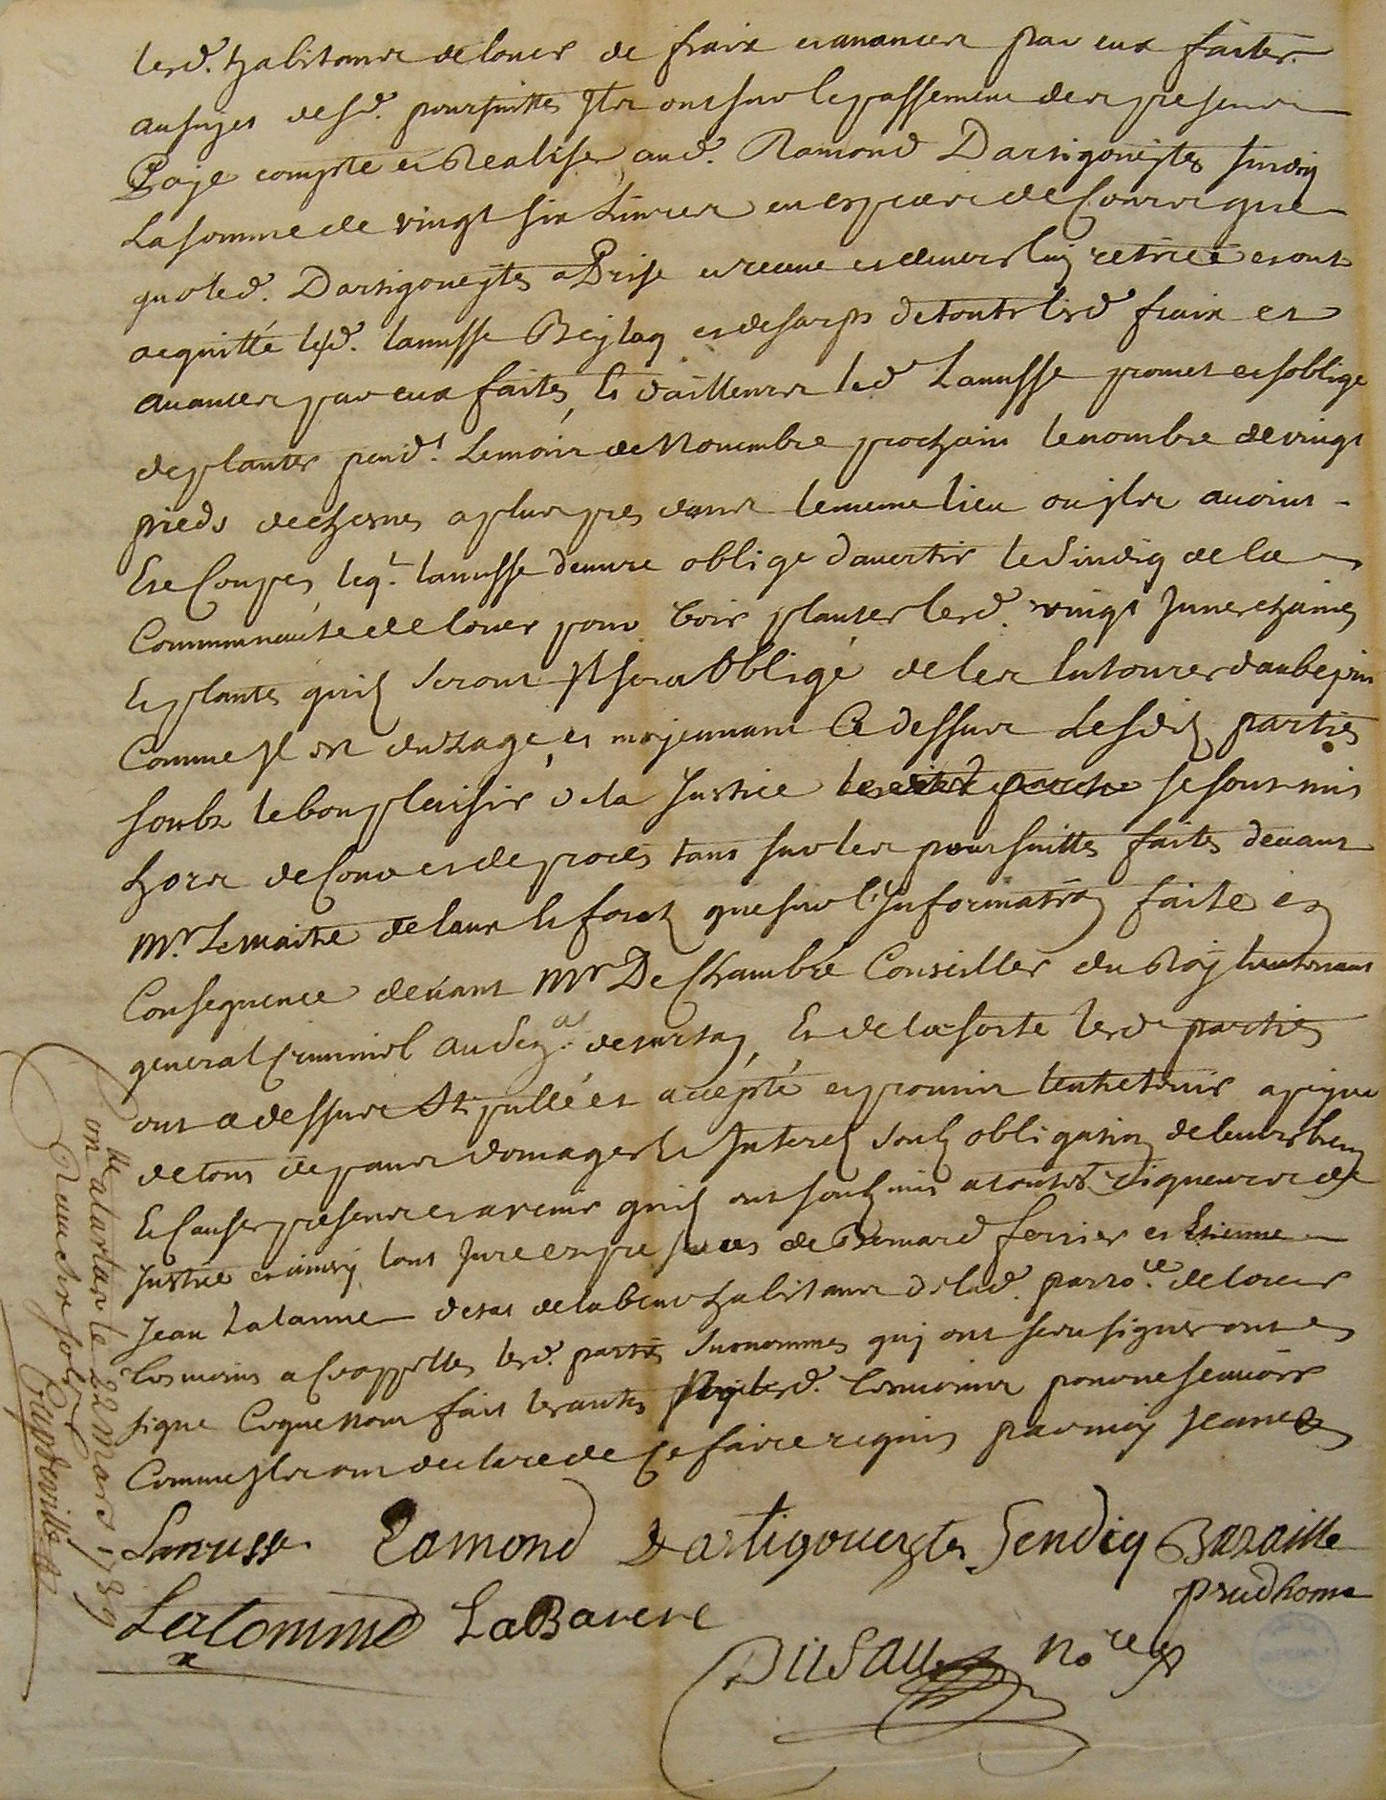 lesd. habitans de louer de fraix et avances par eux faites
au sujet desd. poursuittes Ils ont sur le passement des presentes
Paye compte et Realisé aud. Ramond Dartigoueytes sindiq
La somme de vingt six Livres en especes de Cours que
que led. Dartigoueytes a Prise et receue et devers luy retirée et ont
acquitté lesd. lanusse Beylaq et desarps de touts lesd fraix et
avances par eux faites, Et d'ailleurs led Lanusse promet et s'oblige
de planter pend.t Le mois de Novembre prochain le nombre de vingt
pieds de chesnes a plus pres dans le meme lieu ou ils avoint
Ete Coupés, leq.l lanusse demure oblige d'avertir le Sindiq de la
Communauté de louer pour voir planter lesd. vingt Junes chaines
Et plantés qu'ils seront Il sera Obligé de les Entourer d'aubepin
Comme Il est d'uzage, et moyennant Ce dessus Lesdis parties
soubs le bon plaisir de la Justice se sont mis
hors de Cour et de procès tant sur les poursuittes faites devant
Mr. Le maitre des eaux Et forets que sur l'Information faite en
Consequence devant Mr De Chambre Conseiller du Roy lieutenant
general Criminel au Seg.al de tartas, Et de la sorte lesd parties
ont ce dessus Stipullé et accepté et promis l'entretenir a peyne
de tous depans domages Et Interets soubs obligation de leurs biens
Et Causes presents et avenir qu'ils ont soubmis a toutes rigueurs de
Justice et ainsy l'ont Juré es presences de Bernard ferrier et Etienne
Jean Lalanne desat de labeur habitans de lad. parro.ce de louer
tesmoins a Ce appelles lesd. parties susnommés quy ont sceu signer ont
signe Ce que nont fait les autres ny lesd. tesmoins pour ne scavoir
Comme Ils ont declaré de Ce faire requis par moy
Lanusse Ramond Dartigoueytes Sendiq Bazaille
prudhome
Latomme LaBarere
Dusau no.re
on.lle a tartas le 22 Mars 1739
Receu six sols
Capdeville